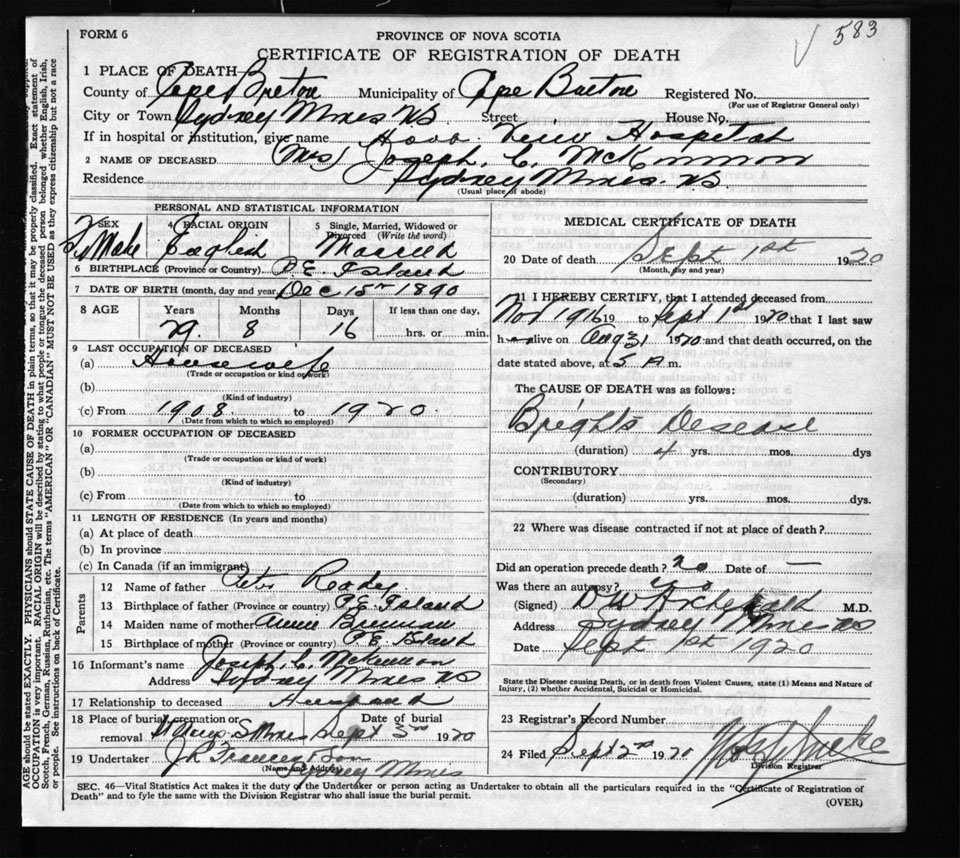 FORM 6
PROVINCE OF NOVA SCOTIA
583
CERTIFICATE OF REGISTRATION OF DEATH
1 PLACE OF DEATH
County of Cape Breton Municipality of Cape Breton Registered No.
(For use of Registrar General only)
City or Town Sydney Mines NS Street House No.
If in hospital or institution, give name Hospital
2 NAME OF DECEASED (Mrs) Joseph. C. McKinnon
Residence Sydney Mines. NS.
(Usual place of abode)
PERSONAL AND STATISTICAL INFORMATION
SEX 4 RACIAL ORIGIN 5 Single, Married, Widowed or Divorced (Write the word)
Female English Married
6 BIRTHPLACE (Province or Country) P. E. Island
7 DATE OF BIRTH (month, day and year) Dec 15th 1890
8 AGE Years Months Days If less than one day,
29. 8 16 hrs. or min.
9 LAST OCCUPATION OF DECEASED
(a) Housewife
(Trade or occupation or kind of work)
(b)
(Kind of industry)
(c) From 1908. to 1920.
(Date from which to which so employed)
10 FORMER OCCUPATION OF DECEASED
(a)
(Trade or occupation or kind of work)
(b)
(Kind of industry)
(c) From to
(Date from which to which so employed)
11 LENGTH OF RESIDENCE (In years and months)
(a) At place of death
(b) In province
(c) In Canada (if an immigrant)
Parents
12 Name of father Peter
13 Birthplace of father (Province or country) P.E. Island
14 Maiden name of mother Annie Brennan
15 Birthplace of mother (Province or country) P.E. Island
16 Informant's name Joseph. C. McKinnon
Address Sydney Mines NS
17 Relationship to deceased Husband
18 Place of burial, cremation or removal Date of burial
S Mines Sept 3rd 1920
19 Undertaker Son
(Name and Address) Sydney Mines
MEDICAL CERTIFICATE OF DEATH
20 Date of death Sept 1st 1920
(Month, day and year)
21 I HEREBY CERTIFY, that I attended deceased from
Nov 1916 19 to Sept 1st 1920 that I last saw
her alive on Aug 31 1920 and that death occurred, on the
date stated above, at 5 A. m.
The CAUSE OF DEATH was as follows:
Brights Desease
(duration) 4 yrs. mos. dys
CONTRIBUTORY
(Secondary)
(duration) yrs. mos. dys.
22 Where was disease contracted if not at place of death?
Did an operation precede death? no Date of —
Was there an autopsy?
(Signed) M.D.
Address Sydney Mines NS
Date Sept 1st 1920
State the Disease causing Death, or in death from Violent Causes, state (1) Means and Nature of
Injury, (2) whether Accidental, Suicidal or Homicidal.
23 Registrar's Record Number
24 Filed Sept 2nd 1920
Division Registrar
SEC. 46—Vital Statistics Act makes it the duty of the Undertaker or person acting as Undertaker to obtain all the particulars required in the "Certificate of Registration of
Death" and to fyle the same with the Division Registrar who shall issue the burial permit.
(OVER)
AGE should be stated EXACTLY. PHYSICIANS should STATE CAUSE OF DEATH in plain terms, so that it may be properly classified. Exact statement of
OCCUPATION is very important. RACIAL ORIGIN will be described by stating to what people or tongue the deceased person belonged whether English, Irish,
Scotch, French, German, Russian, Ruthenian, etc. The terms "AMERICAN" OR "CANADIAN" MUST NOT BE USED as they express citizenship but not a race
or people. See instructions on back of Certificate.